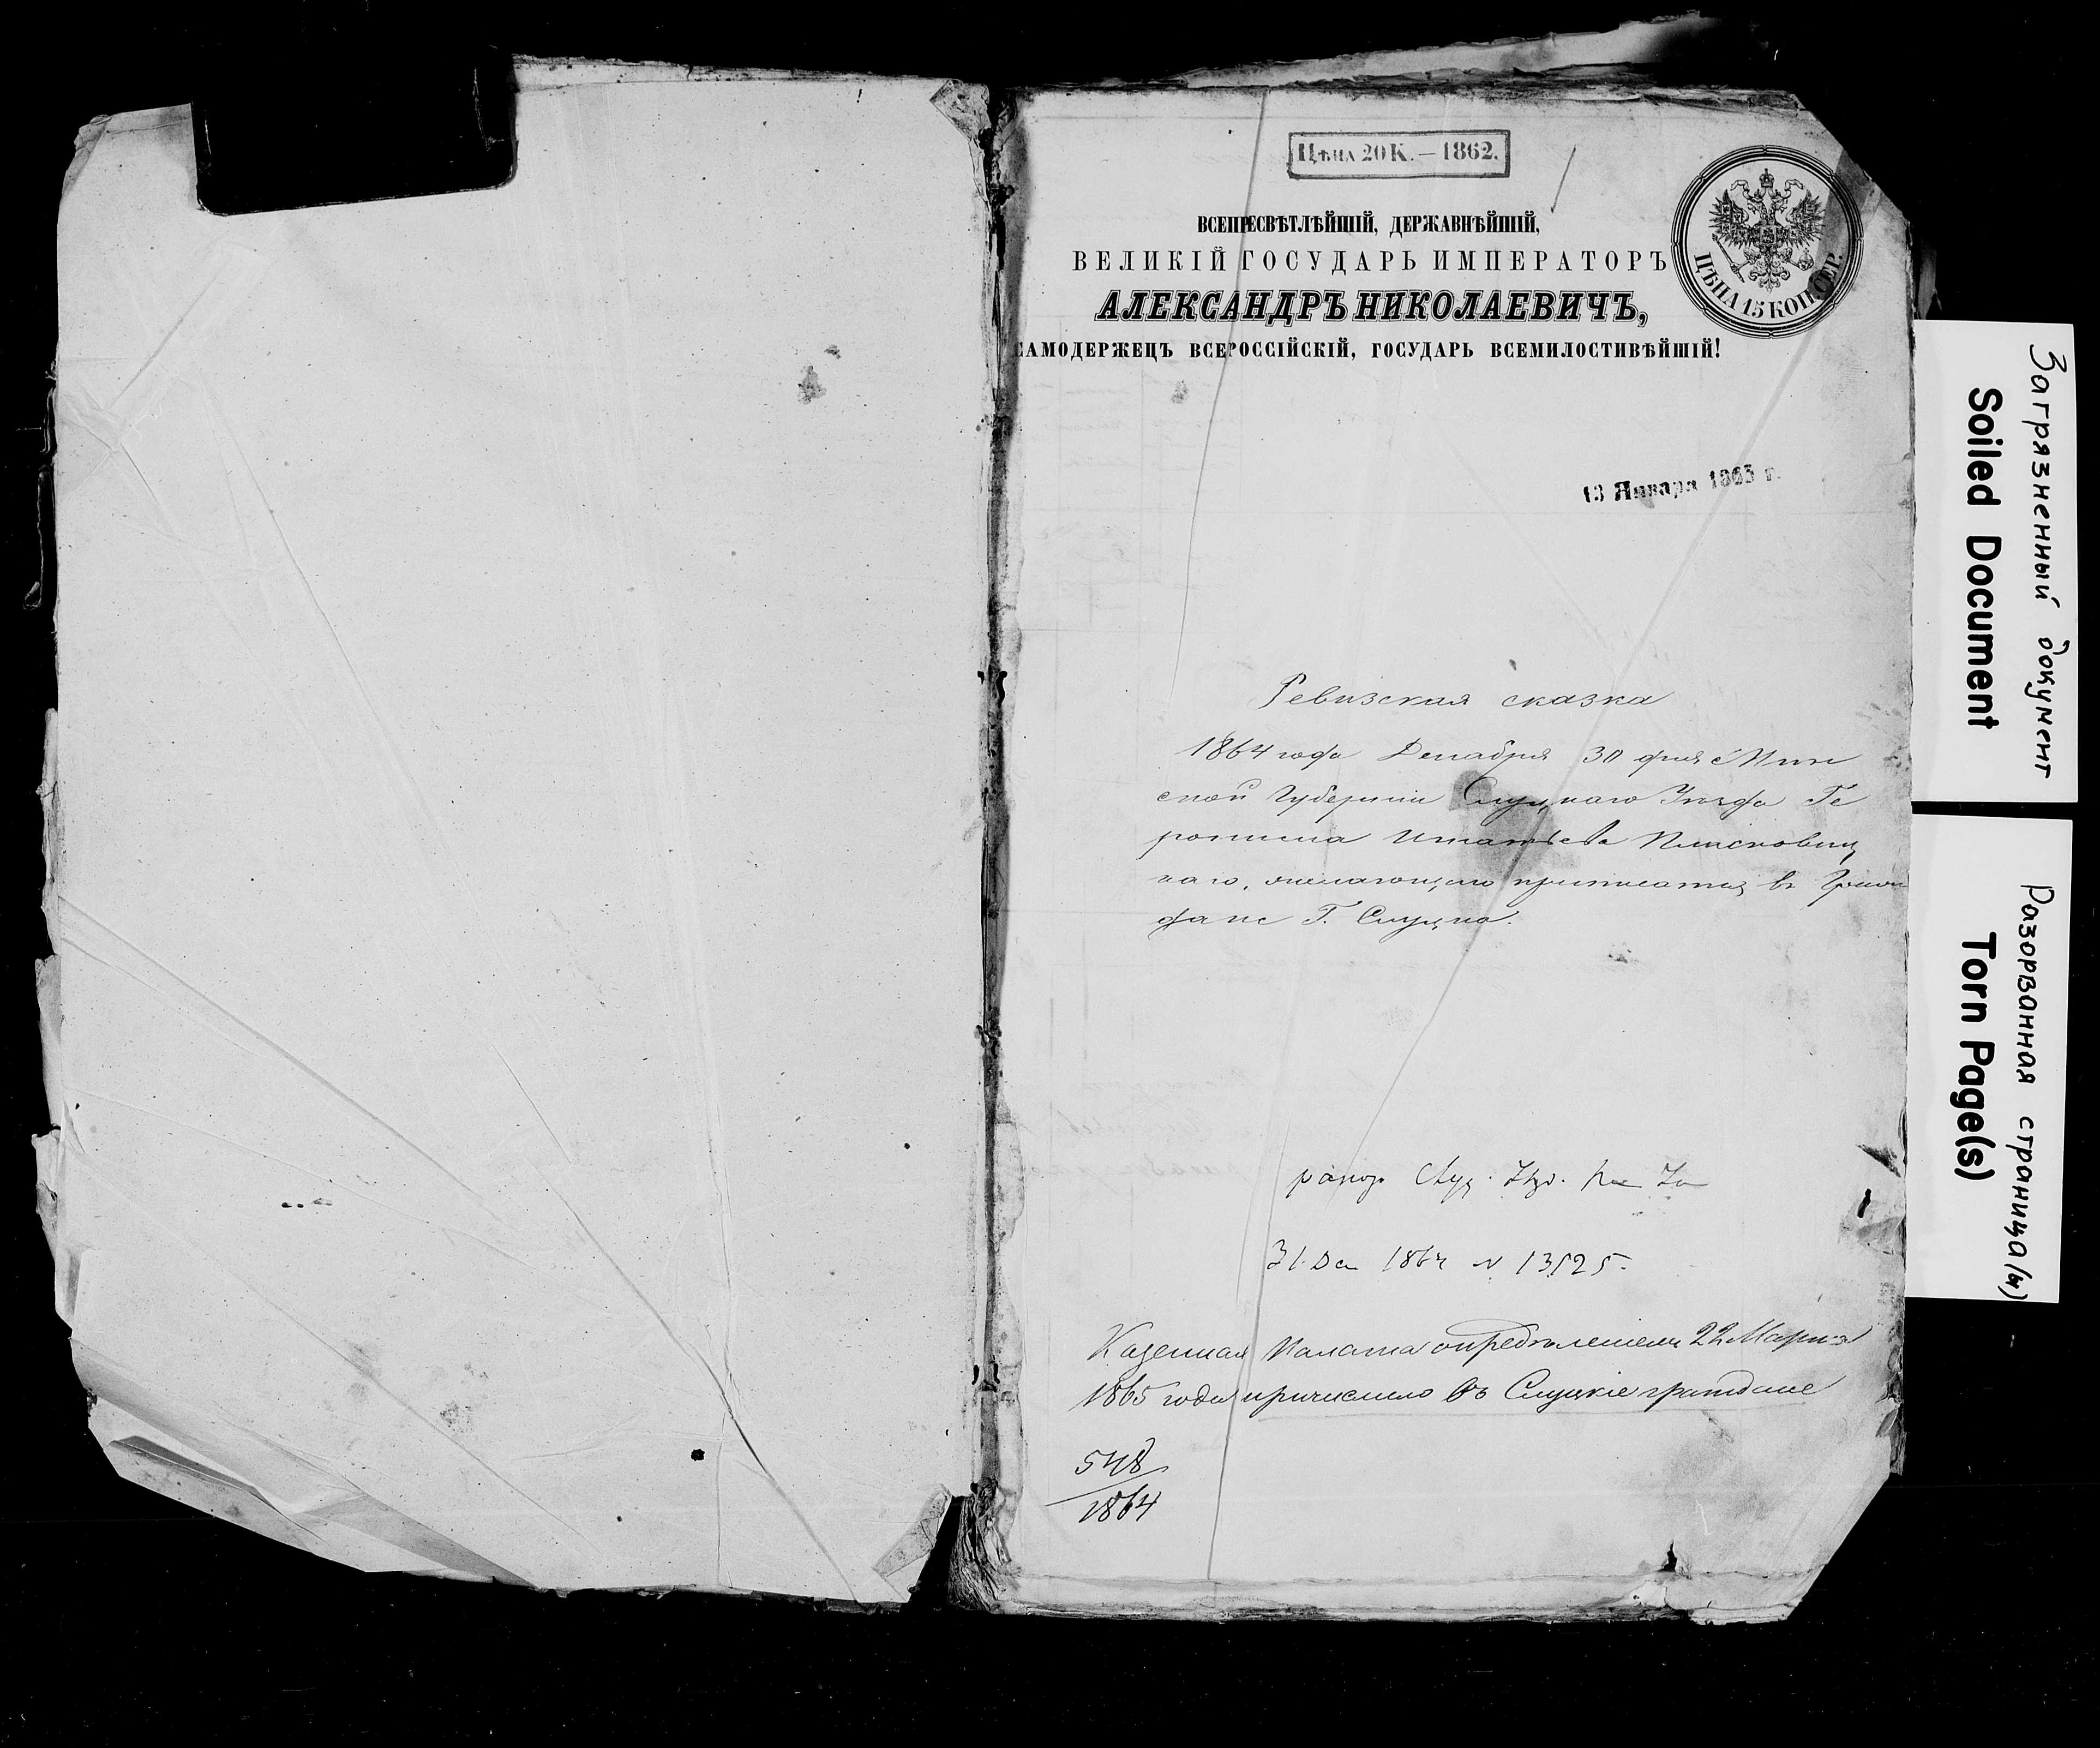 Цѣна 20 К. — 1862.
ВСЕПРЕСВѢТЛѢЙШІЙ, ДЕРЖАВНѢЙШІЙ,
ВЕЛИКІЙ ГОСУДАРЬ ИМПЕРАТОРЪ
АЛЕКСАНДРЪ НИКОЛАЕВИЧЪ,
САМОДЕРЖЕЦЪ ВСЕРОССІЙСКІЙ, ГОСУДАРЬ ВСЕМИЛОСТИВѢЙШІЙ!
ЦѢНА 15 КОП. СЕР.
13 Января 1863 г.
Ревизская сказка
1864 года Декабря 30 дня Мин
ской Губерніи Слуцкаго Уѣзда Ге
ронима Игнатьева
каго, желающаго приписатся въ Граж
дане Г. Слуцка.
рапор. Слуц. Уѣзд.
31 Дек 1864 N 13525.
Казенная Палата опредѣленіемъ 22 Марта
1865 года причислило въ Слуцкіе граждане
548
1864
Загрязненный документ
Soiled Document
Разорванная страница(ы)
Torn Page(s)